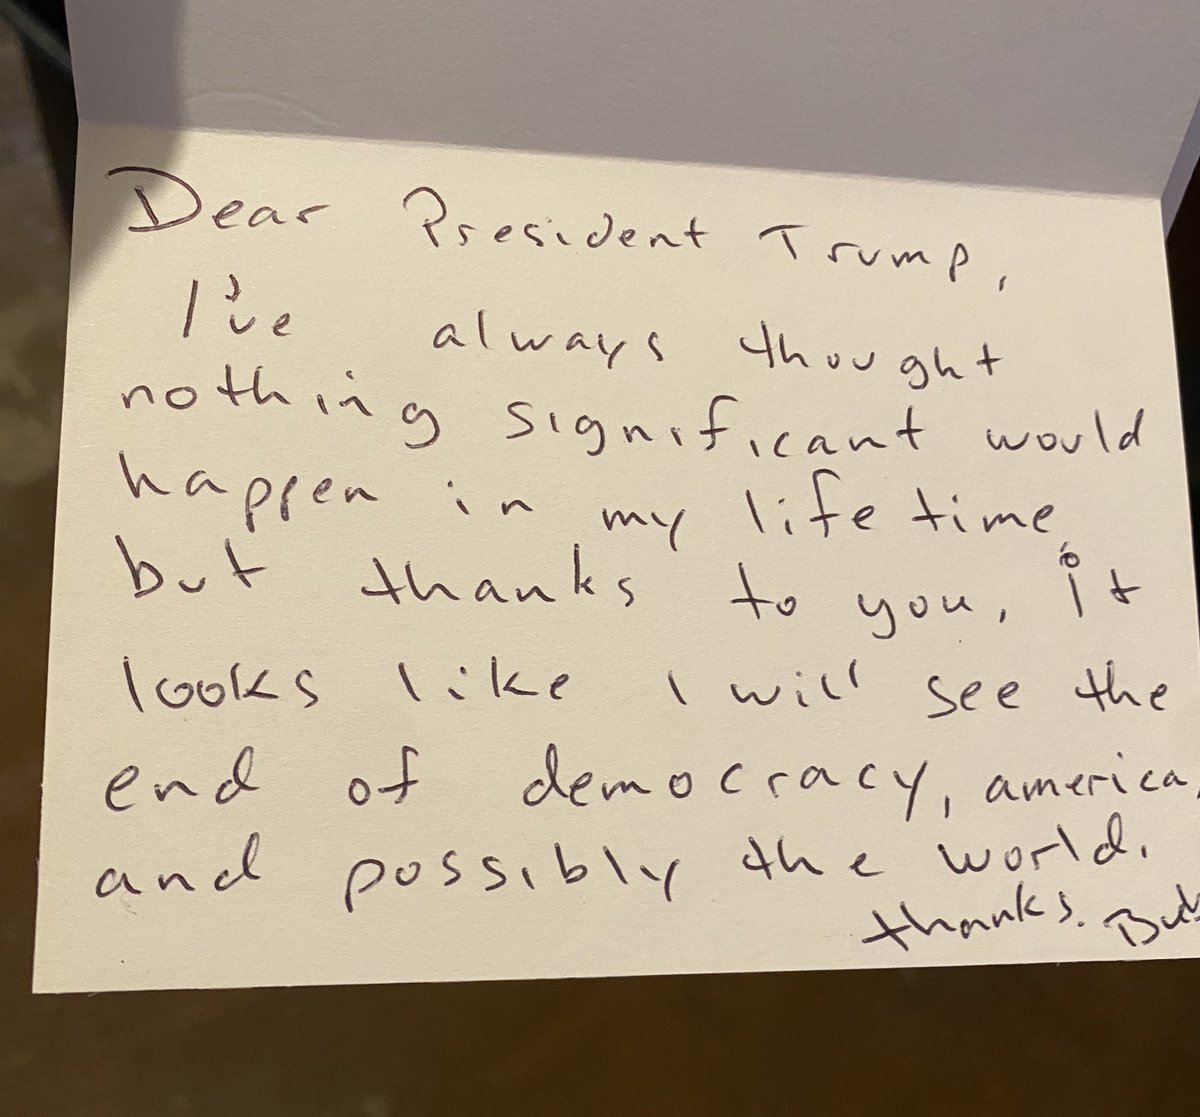 Dear President Trump,
I've always thought
nothing significant would
happen in my lifetime,
but thanks to you, it
looks like I will see the
end of democracy, america,
and possibly the world.
thanks.